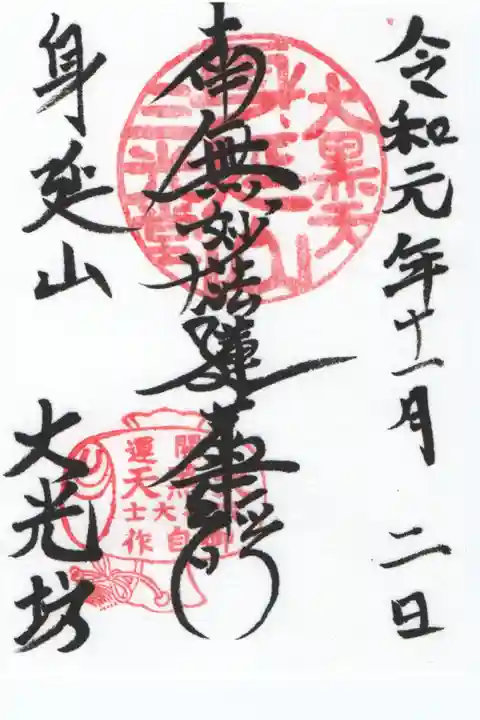 令和元年十一月二日
南無妙法蓮華経
身延山
大光坊
大黒天
身延山
三光堂
開運
大黒天
大士
自作